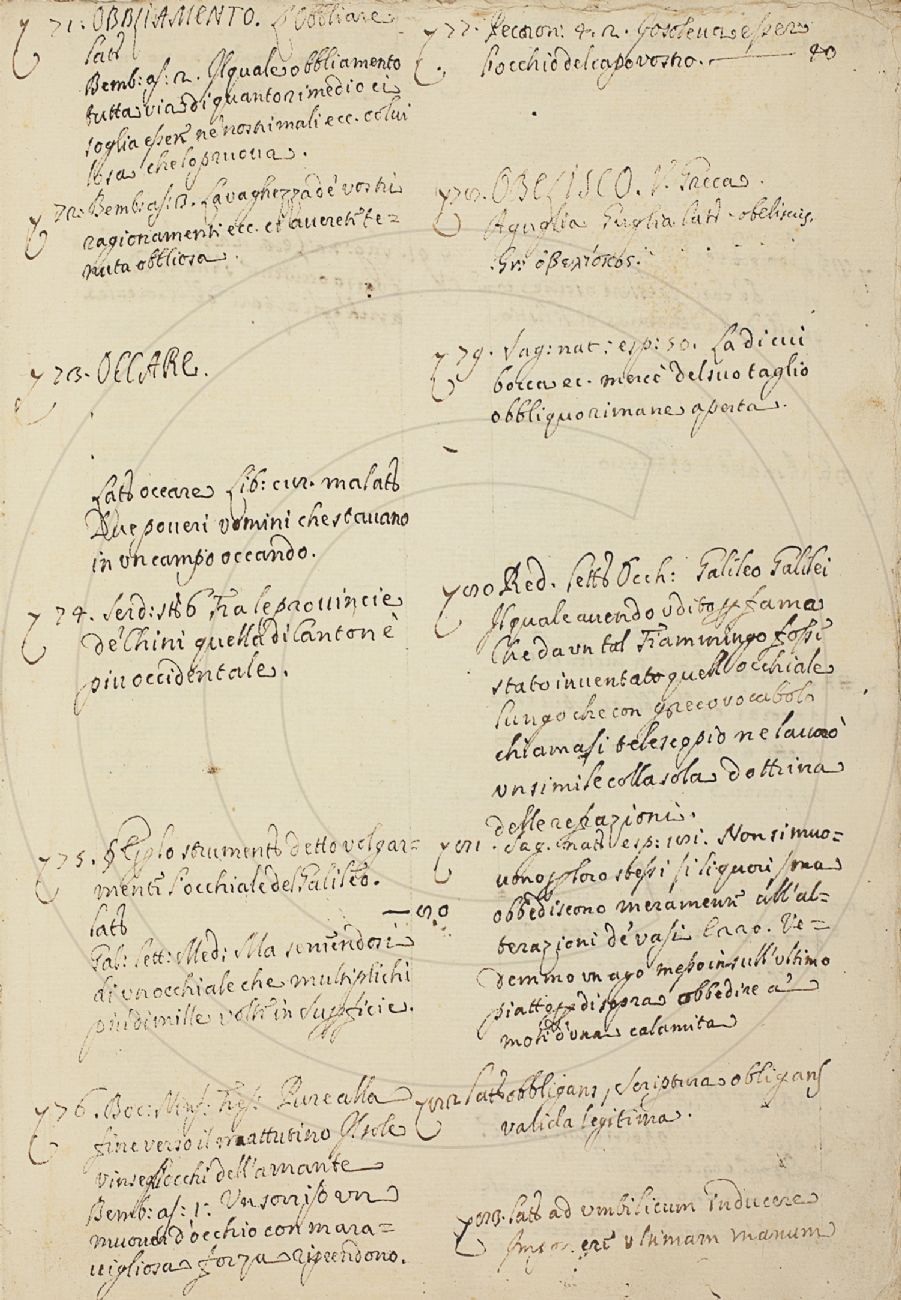 71. OBBLIAMENTO. L'Obbliare
Lat.
Bemb: as: 2. Il quale obbliamento
tutta via di quanto rimedio ci
soglia esser ne' nostri mali ecc. colui
lo sa che lo pruova.
72. Bemb: as: 3. La vaghezza de' vostri
ragionamenti etc. ci avereb te=
nuta obbliosa.
73. OCCARE.
Lat. occare Lib: cur. malat.
Due poveri uomini che stavano
in un campo occando.
74. Serd: st. 6 Fra le provincie
de' Chini quella di Canton è
piu occidentale.
75. § E p lo strumento detto volgar=
mente l'occhiale del Galileo.
Lat.
Gal: lett: Med: Ma servendosi
di un occhiale che multiplichi
piu di mille volte in superficie.
76. Boc: Ninf: Fies: Pure alla
fine verso il mattutino Il sole
vinse gl'occhi dell'amante
Bemb: as: 1. Un sorriso un
muover d'occhio con mara=
vigliosa forza ci prendono.
77. Pecoron: 4. 2. Io soleva esser
l'occhio del capo vostro. 40
78. OBELISCO. V. Greca.
Aguglia Guglia lat. obeliscus,
Gr: ὀβελίσκος.
79. Sag: nat: esp: 50. La di cui
bocca ec. mercè del suo taglio
obbliquo rimane aperta.
80 Red. lett. Occh: Galileo Galilei
Il quale avendo udito p fama
Che da un tal Fiammingo fosse
stato inventato quell occhiale
lungo che con greco vocabolo
chiamasi telescopio ne lavorò
un simile colla sola dottrina
delle refrazioni.
81. Sag. nat. esp: 101. Non si muo=
vono p loro stessi li liquori ma
obbediscono meramente all'al=
terazioni de' vasi Ve=
demmo un ago messo in sull'ultimo
piatto p di sopra obbedire a'
moti d'una calamita
82 Lat. obbligans, scriptura obligans
valida legitima.
83. Lat. ad umbilicum inducere
ultimam manum